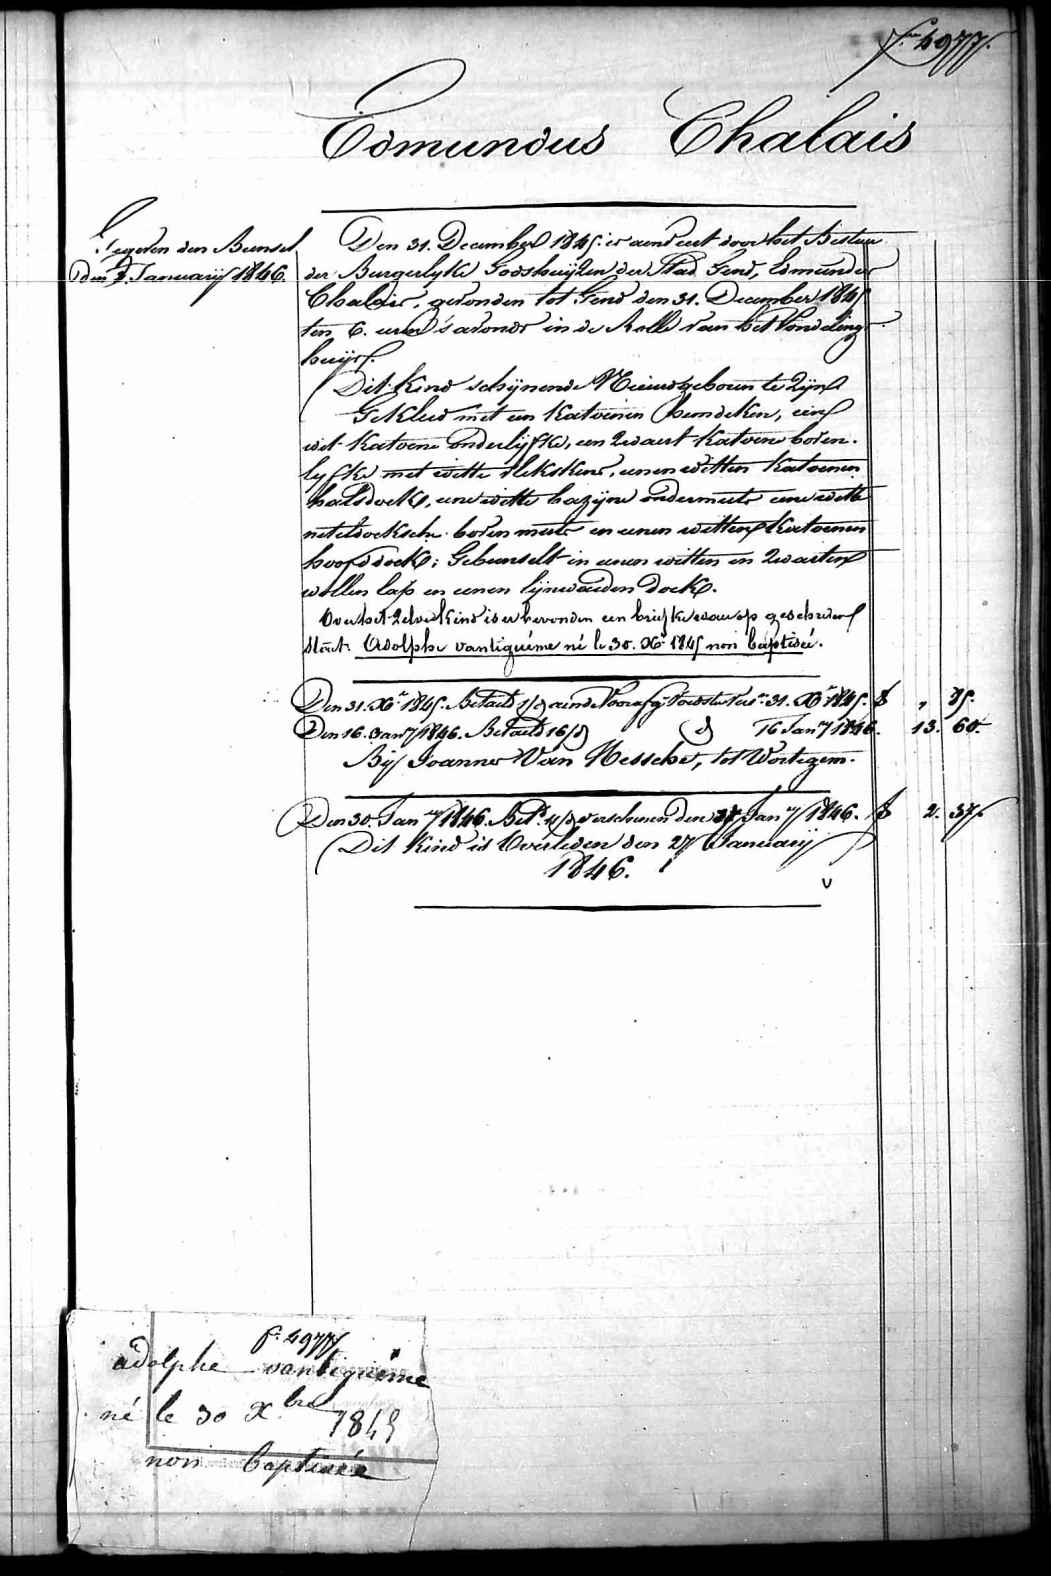 f° 4977.
Edmundus Chalais
Gegeven den Bunsel
den 2 Januarij 1846.
Den 31. December 1845. is aenveert door het Bestuer
der Burgerlyke Godshuijzen der Stad Gend, Edmundus
Chalais, gevonden tot Gend den 31. December 1845
ten 6. uren 's avonds in de Rolle van het Vondeling-
huijs.
Dit Kind schijnende Nieuwgeboren te Zijn
Gekleed met een Katoenen hemdeken, een
wit Katoene onderlijfke, een Zwaert Katoene boven-
lyfke met witte vlekskens, eenen witten Katoenen
halsdoek, eene witte bazijne ondermuts eene witte
neteldoeksche boven muts en eenen witten Katoenen
hoofddoek; Gebunselt in eenen witten en Zwarten
wollen lap en eenen lijnwaeden doek.
Over het Zelve Kind is er bevonden een briefke waer op geschreven
staet: Adolphe vantiguéme né le 30. Xb 1845 non baptiseé.
Den 31. Xb 1845. Betaeld 1/d aende Voorafg Voedster Vers. 31. Xb 1845. f , 85.
Den 16. Jany 1846. Betaeld 16/d d 16 Jany 1846. 13. 60.
Bij Joannes Van Nessche, tot Wortegem.
Den 30. Jany 1846. Betd. 11/d verschenen den 27 Jany 1846. f 2. 37.
Dit Kind is Overleden den 27 Januarij
1846.
f° 4977
adolphe vantiguéme
né le 30 Xbre 1845
non baptiseé